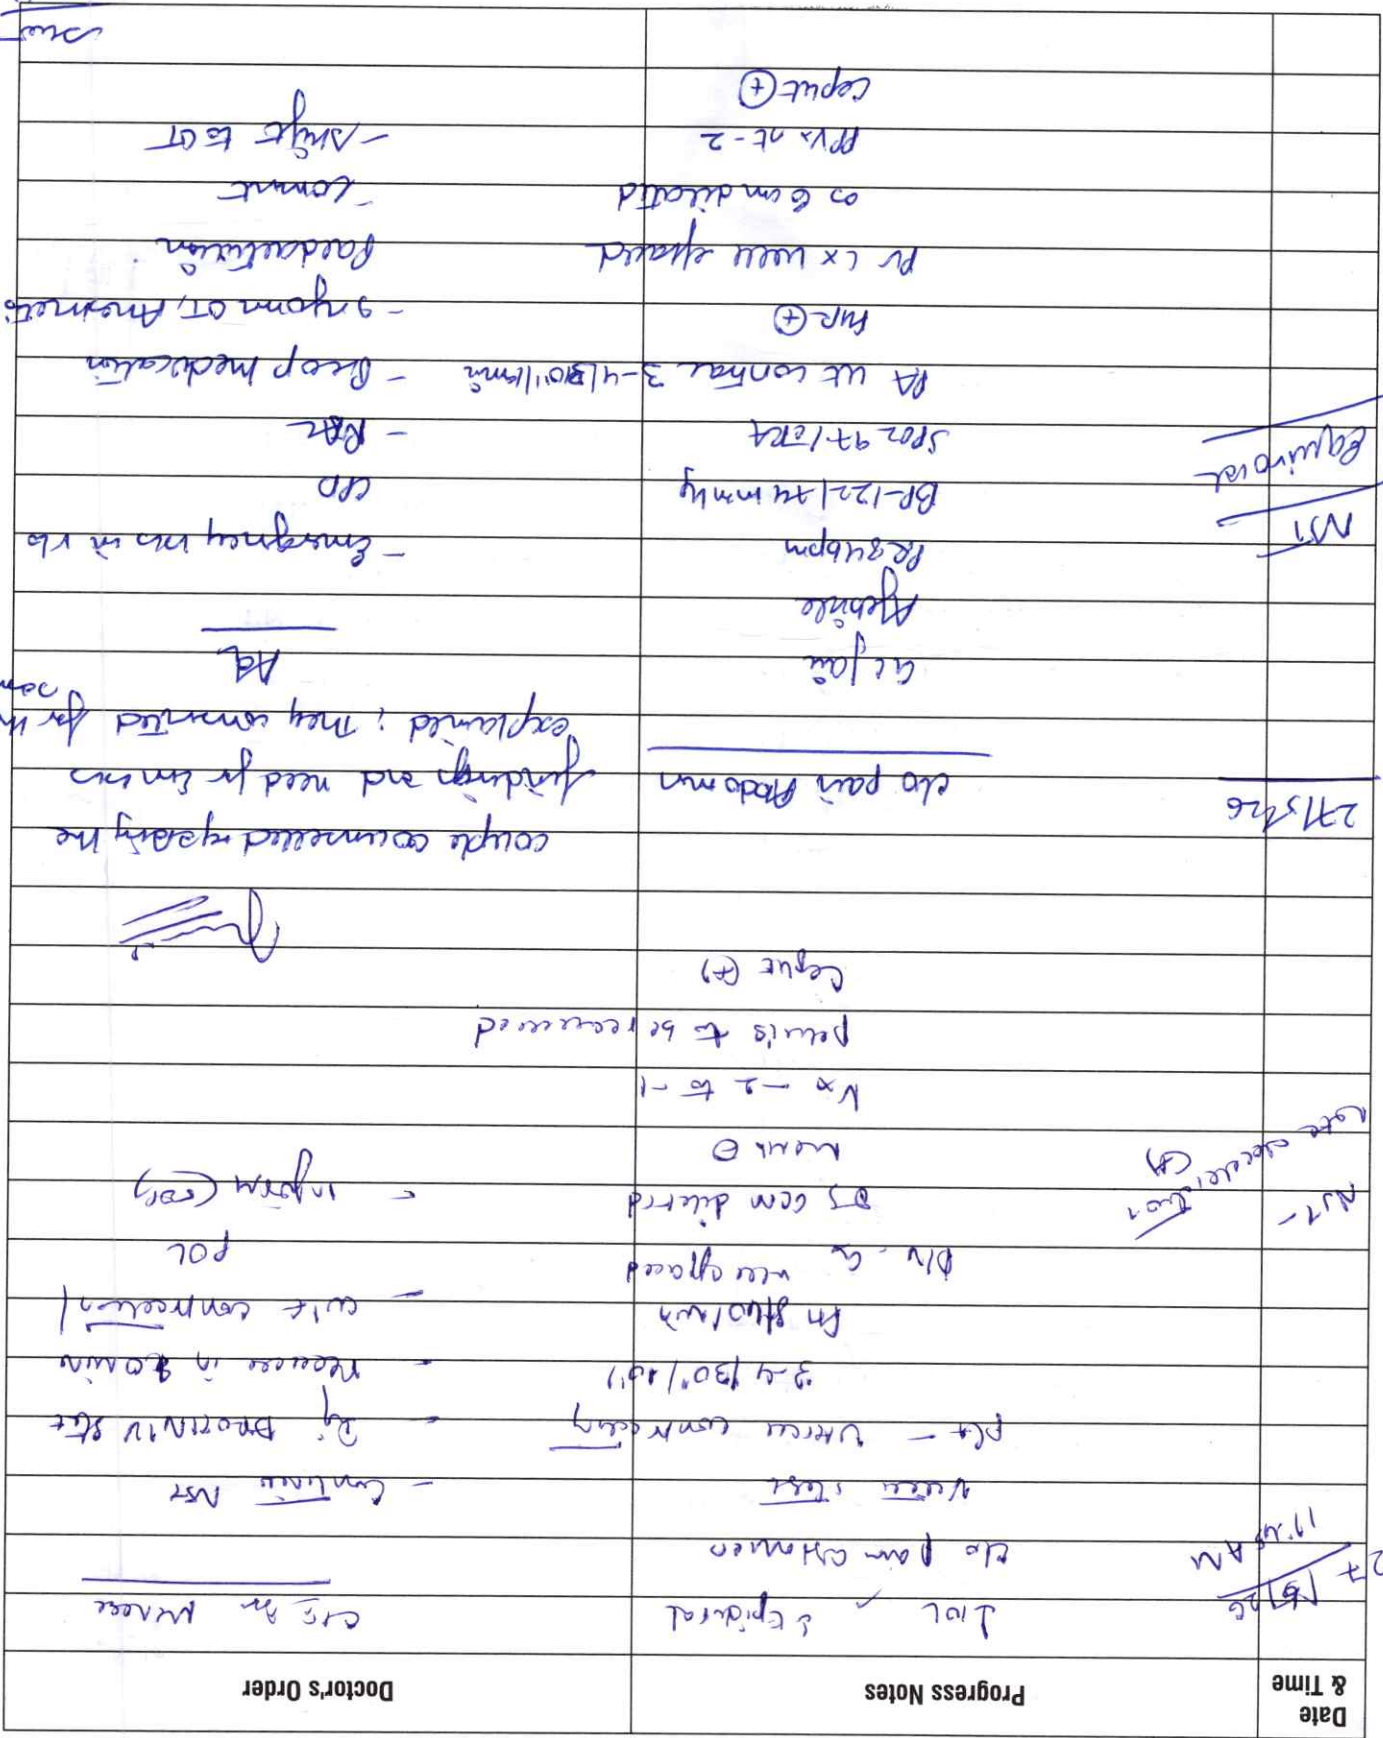 Date & Time
Progress Notes
Doctor's Order
27/5/26
11:45 AM
IOL Epidural
c/o pain abdomen
- Continue NST
P/A - Uterus contracting
- Inj DROTIN IV stat
3-4/30"/10'
- Review in 20 min
P/V - Cx well effaced
POL
NST -
Os 6cm dilated
- inform (SOS)
Memb ⊖
Vx -2 to -1
pelvis to be reassessed
Caput (+)
couple counselled regarding the
27/5/26
c/o pain Abdomen
findings and need for Em LSCS
explained; they consented for the
same
GC fair
Adv
Afebrile
PR 84 bpm
- Emergency LSCS in v/o
NST
BP-122/74 mmHg
CPD
Equivocal
SPO2 97% RA
PA ut contrac 3-4/30"/10min
- Preop medication
FHR ⊕
- Inform OT, Anesthetist
PV Cx well effaced
Paediatrician
os 6 cm dilated
- Consent
PPVx at -2
- Shift to OT
Caput ⊕